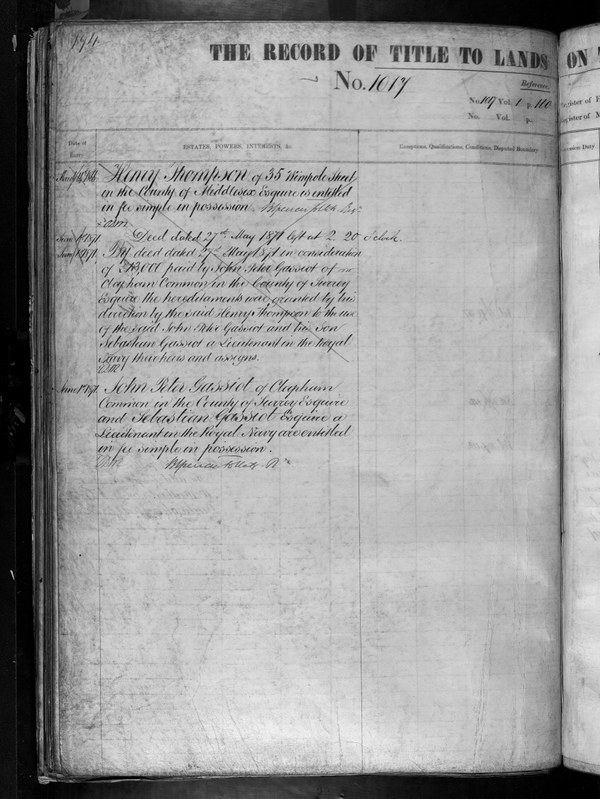 194
THE RECORD OF TITLE TO LANDS
ON T
No. 1017
Reference.
No. 109 Vol. 1 p. 160
No. Vol. p.
Register of
Register of M
Date of Entry
ESTATES, POWERS, INTERESTS, &c.
Exceptions, Qualifications, Conditions, Disputed Boundary
Duty
Henry Thompson of 35 Wimpole Street
in the County of Middlesex Esquire is entitled
in fee simple in possession
June 1st 1871. Deed dated 27th May 1871 left at 2. 20 o'clock.
June 1st 1871. By deed dated 27th May 1871 in consideration
of paid by John Peter Gassiot of
Clapham Common in the County of Surrey
Esquire the hereditaments were granted by the
direction by the said Henry Thompson to the use
of the said John Peter Gassiot and his son
Sebastian Gassiot a Lieutenant in the Royal
Navy their heirs and assigns.
June 1st 1871. John Peter Gassiot of Clapham
Common in the County of Surrey Esquire
and Sebastian Gassiot Esquire a
Lieutenant in the Royal Navy are entitled
in fee simple in possession.